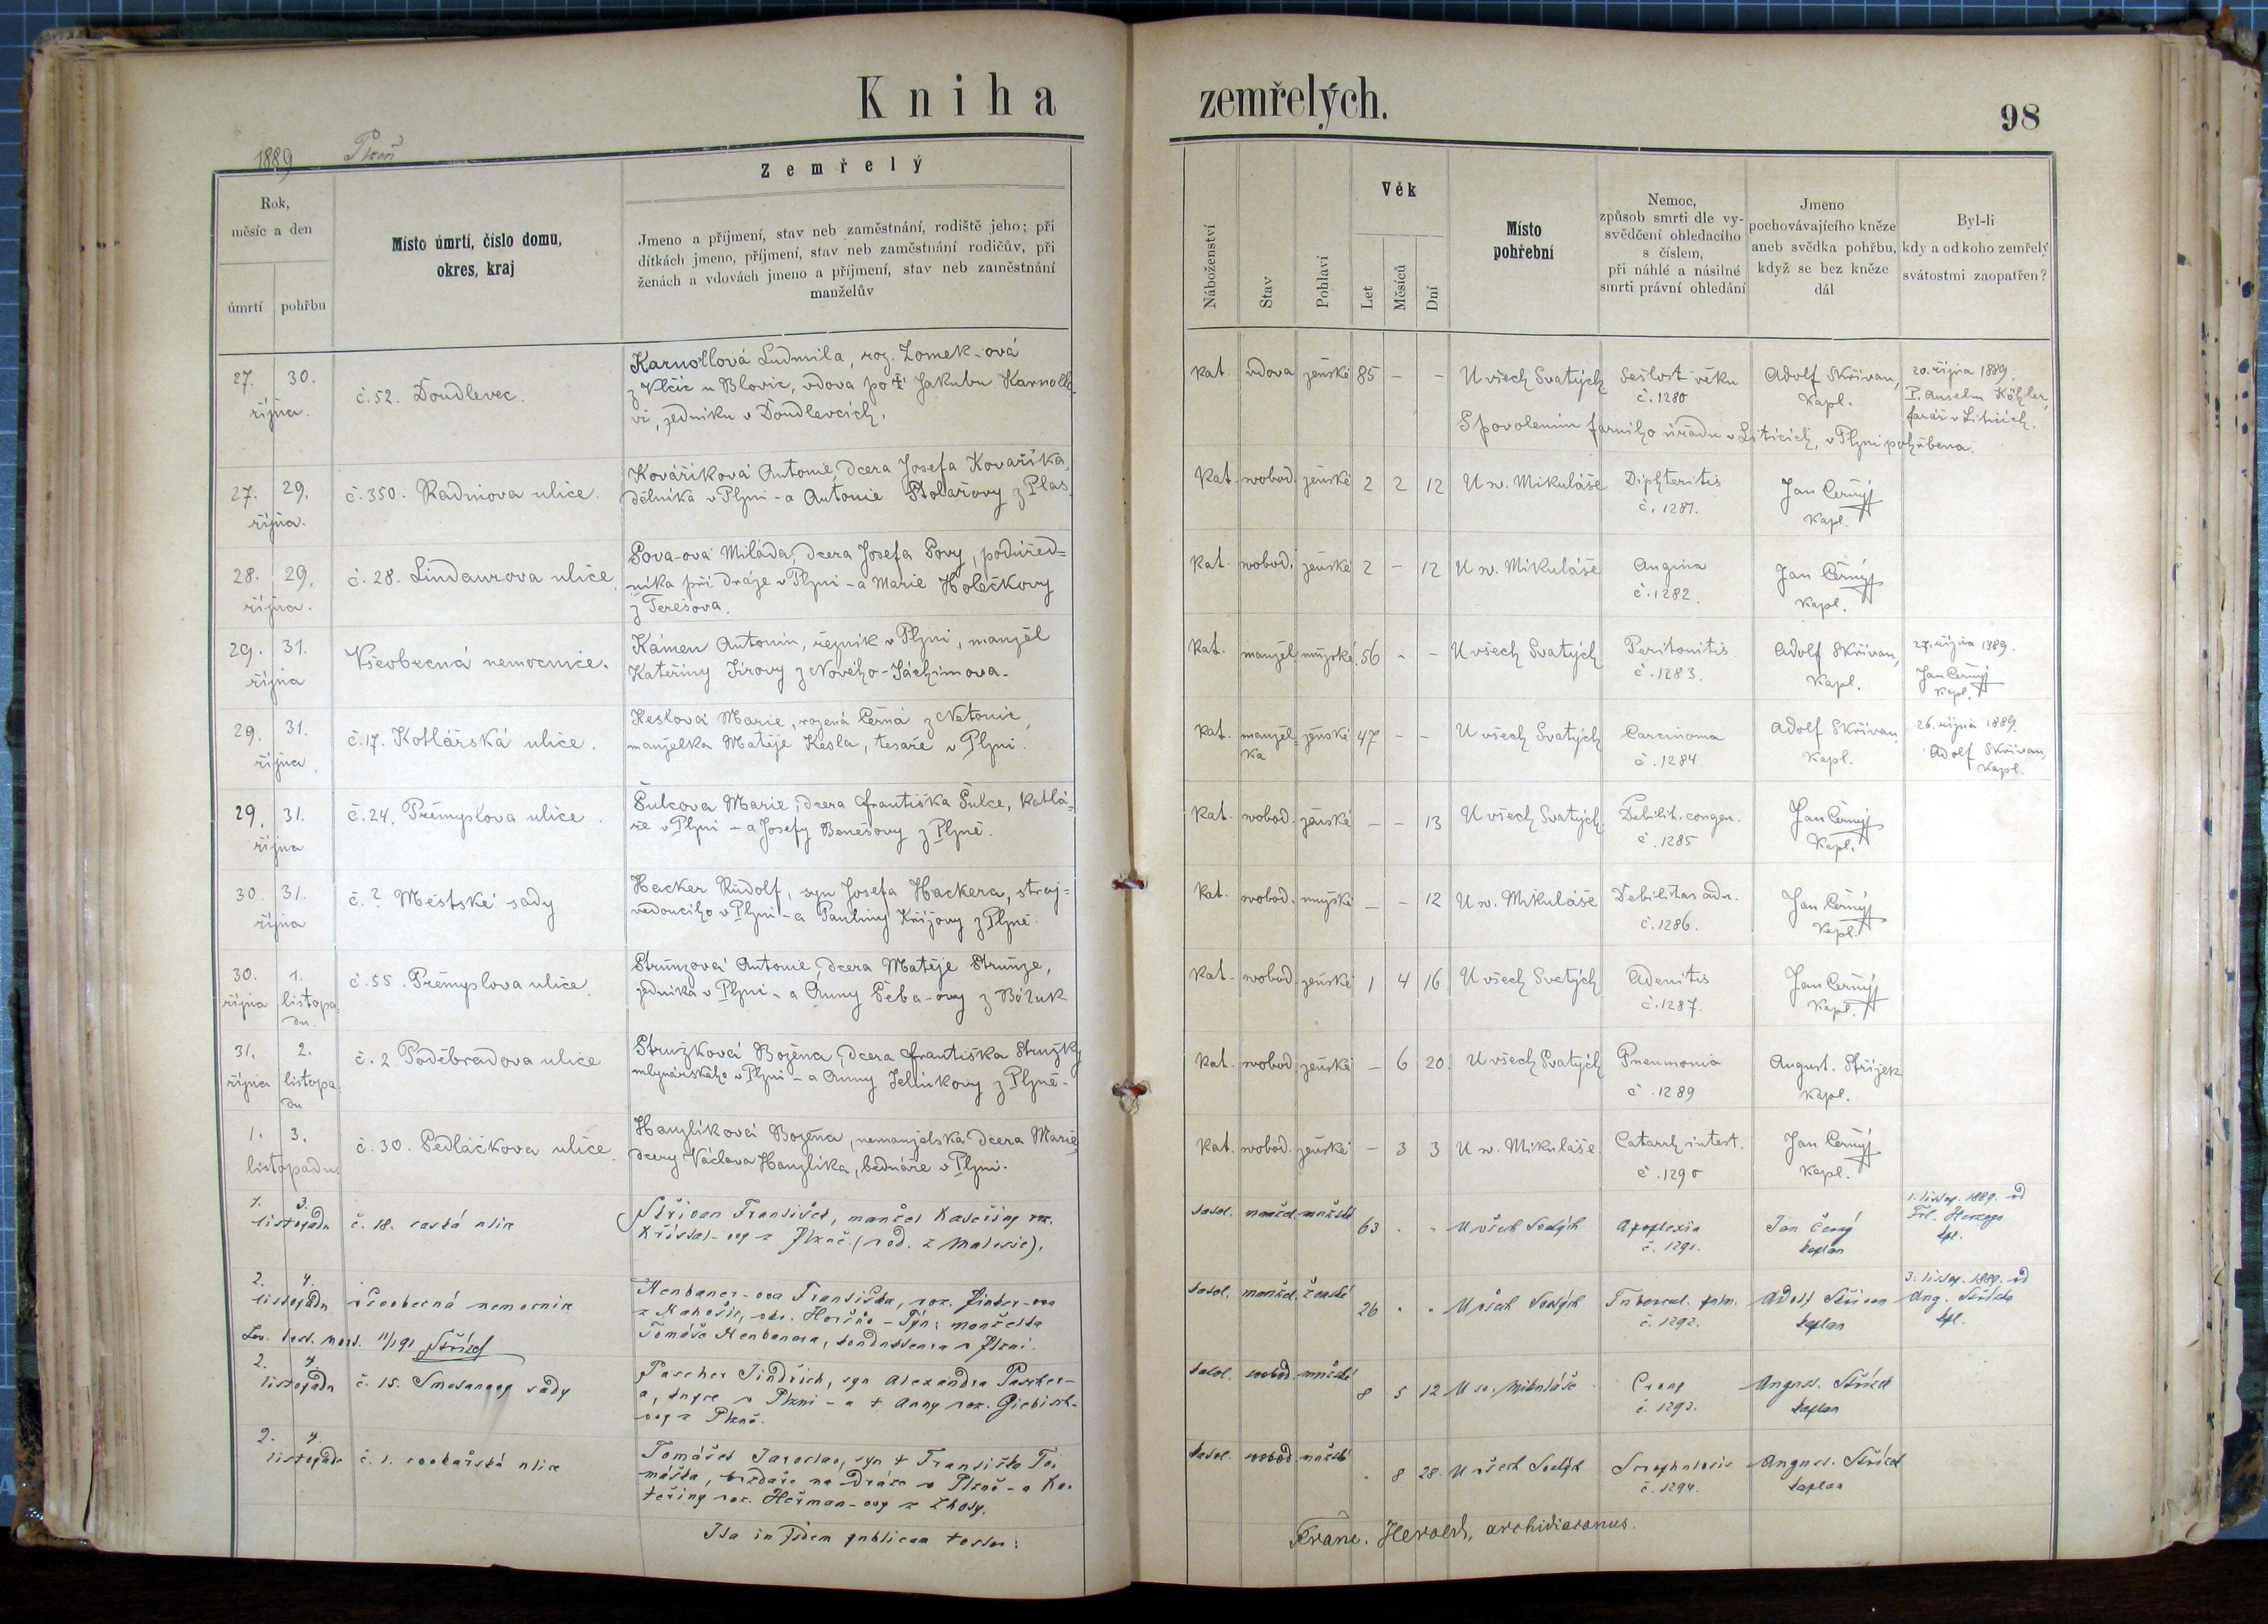 Kniha zemřelých.
98
1889 Plzeň
Zemřelý
Rok,
měsíc a den
úmrtí pohřbu
Místo úmrtí, číslo domu,
okres, kraj
Jmeno a příjmení, stav neb zaměstnání, rodiště jeho; při
dítkách jmeno, příjmení, stav neb zaměstnání rodičův, při
ženách a vdovách jmeno a příjmení, stav neb zaměstnání
manželův
Náboženství
Stav
Pohlaví
Věk
Let
Měsíců
Dní
Místo
pohřební
Nemoc,
způsob smrti dle vy-
svědčení ohledacího
s číslem,
při náhlé a násilné
smrti právní ohledání
Jmeno
pochovávajícího kněze
aneb svědka pohřbu,
když se bez kněze
dál
Byl-li
kdy a od koho zemřelý
svátostmi zaopatřen?
27. 30.
října.
č. 52. Doudlevec.
Karnollová Ludmila, roz. Zomek-ová
z Vlčic u Blovic, vdova po † Jakubu Karnollo-
vi, zedníku v Doudlevcích.
kat. vdova ženské 85 - - U všech Svatých
Sešlost věku
č. 1280
Adolf Skřivan,
kapl.
20. října 1889.
P. Anselm Köhler,
farář v Liticích.
S povolením farního úřadu v Liticích, v Plzni pohřbena.
27. 29.
října.
č. 350. Radniova ulice.
Kovaříková Antonie, dcera Josefa Kovaříka,
dělníka v Plzni - a Antonie Stolařovy z Plas.
Kat. svobod. ženské 2 2 12 U sv. Mikuláše
Diphteritis
č. 1281.
Jan Černý
kapl.
28. 29.
října.
č. 28. Lindaurova ulice
Sova-ová Milada, dcera Josefa Sovy, podúřed=
níka při dráze v Plzni - a Marie Holečkovy
z Terešova.
Kat. svobod. ženské 2 - 12 U sv. Mikuláše
Angina
č. 1282.
Jan Černý
kapl.
29. 31.
října
Všeobecná nemocnice.
Kámen Antonín, řezník v Plzni, manžel
Kateřiny Jírovy z Nového-Jáchimova.
Kat. manžel mužské 56 - - U všech Svatých
Peritonitis
č. 1283.
Adolf Skřivan,
kapl.
27. října 1889.
Jan Černý
kapl.
29. 31.
října
č. 17. Kotlářská ulice.
Keslová Marie, rozená Černá z Netonic,
manželka Matěje Kesla, tesaře v Plzni.
Kat. manžel=
ka ženské 47 - - U všech Svatých
Carcinoma
č. 1284
Adolf Skřivan,
kapl.
26. října 1889.
Adolf Skřivan,
kapl.
29. 31.
října
č. 24. Přemyslova ulice.
Šulcova Marie, dcera Františka Šulce, kotlá=
ře v Plzni - a Josefy Benešovy z Plzně.
Kat. svobod. ženské - - 13 U všech Svatých
Debilit. congen.
č. 1285
Jan Černý
kapl.
30. 31.
října
č. ? Městské sady
Hacker Rudolf, syn Josefa Hackera, stroj=
vedoucího v Plzni - a Pauliny Křížovy z Plzně.
Kat. svobod. mužské - - 12 U sv. Mikuláše
Debilitas adn.
č. 1286.
Jan Černý
kapl.
30. 1.
října listopa=
du.
č. 55. Přemyslova ulice.
Strunzová Antonie, dcera Matěje Strunze,
zedníka v Plzni - a Anny Šeba-ovy z Bózuk
Kat. svobod. ženské 1 4 16 U všech Svatých
Adenitis
č. 1287.
Jan Černý
kapl.
31. 2.
října listopa
du
č. 2 Poděbradova ulice
Stružková Božena, dcera Františka Stružky
mlynářského v Plzni - a Anny Jelínkovy z Plzně.
Kat. svobod. ženské - 6 20. U všech Svatých
Pneumonia
č. 1289
August. Střízek
kapl.
1. 3.
listopadu.
č. 30. Sedláčkova ulice.
Hanzlíková Božena, nemanželská dcera Marie,
dcery Václava Hanzlíka, bednáře v Plzni.
Kat. svobod. ženské - 3 3 U sv. Mikuláše
Catarrh intest.
č. 1290
Jan Černý
kapl.
1. 3.
listopadu
č. 18. ulice
Skřivan František, manžel Kateřiny roz.
Křištal-ovy z Plzně. (rod. z Malesic).
katol. manžel mužské 63 - - U všech Svatých
Apoplexia
č. 1291.
Jan Černý
kaplan
1. listop. 1889. od
Herzoga
kpl.
2. 4.
listopadu
všeobecná nemocnice
Menbaner-ova Františka, roz. Pinter-ova
okr. Horšův-Týn; manželka
Tomáše Menbanera, kondukteura v Plzni.
katol. manžel. ženské 26 - - U všech Svatých
Tubercul. pulm.
č. 1292.
Adolf Skřivan
kaplan
3. listop. 1889. od
Aug. Střízka
kpl.
2. 4.
listopadu
č. 15. Smetanovy sady
Pascher Jindřich, syn Alexandra Pascher-
a, kupce v Plzni - a † Anny roz. Giebisch-
ovy z Plzně.
katol. svobod. mužské 8 5 12 U sv. Mikuláše
Croup
č. 1293.
August. Střízek
kaplan
2. 4.
listopadu
č. 1. soukařská ulice
Tomášek Jaroslav, syn † Františka To-
máška, brzdaře na dráze v Plzni - a Ka-
teřiny roz. Heřman-ovy z Lhoty.
katol. svobod. mužské - 8 28. U všech Svatých
Scrophulosis
č. 1294.
August. Střízek
kaplan
Ita in fidem publicam testor:
Franc. Herold, archidiaconus.